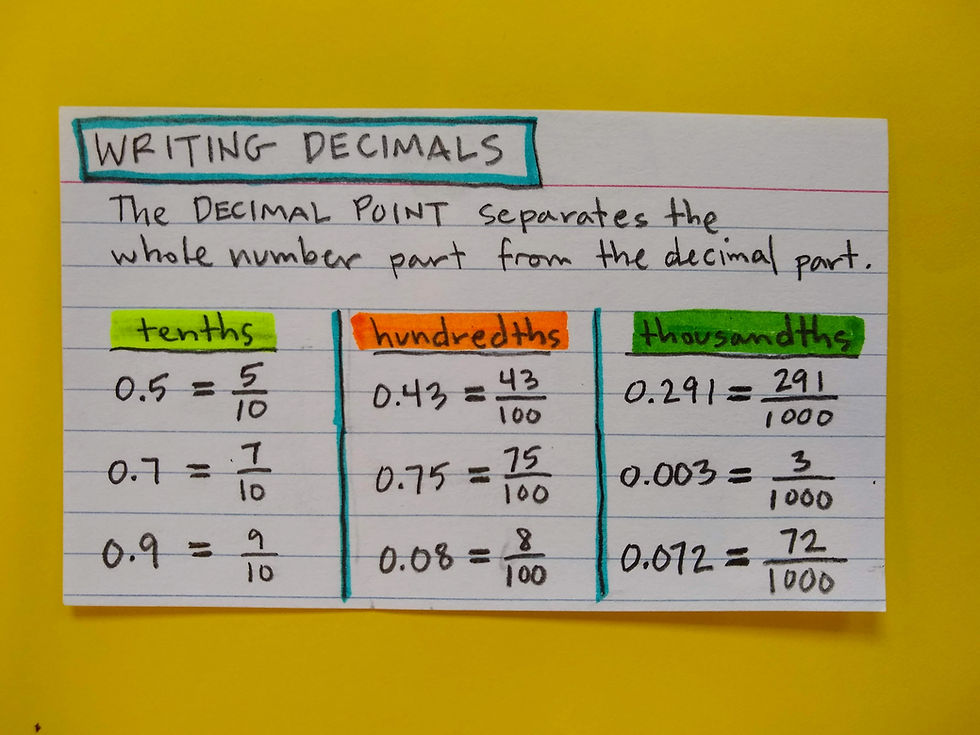 WRITING DECIMALS
The DECIMAL POINT separates the
whole number part from the decimal part.
tenths hundredths thousandths
0.5 = 5/10 0.43 = 43/100 0.291 = 291/1000
0.7 = 7/10 0.75 = 75/100 0.003 = 3/1000
0.9 = 9/10 0.08 = 8/100 0.072 = 72/1000